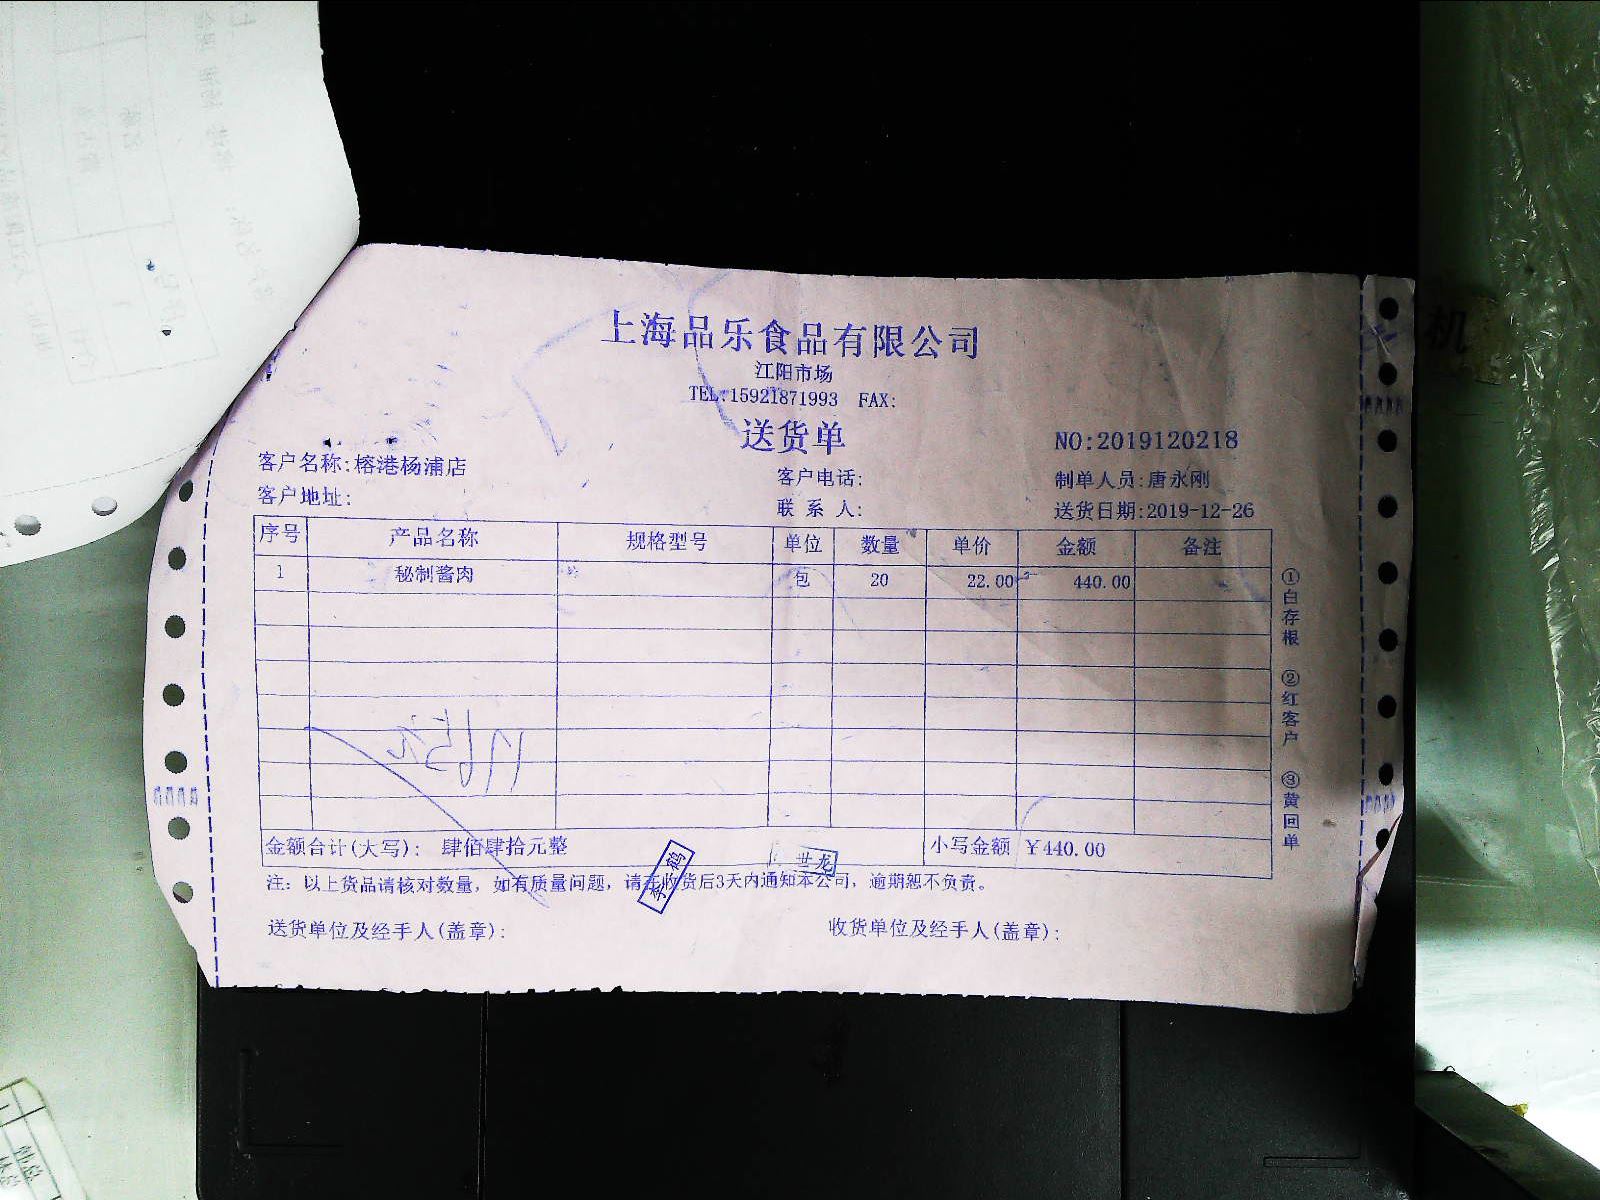 上海品乐食品有限公司
江阳市场
TEL:15921871993 FAX:
送货单
NO:2019120218
客户名称:榕港杨浦店
客户电话:
制单人员:唐永刚
客户地址:
联 系 人:
送货日期:2019-12-26
序号 产品名称 规格型号 单位 数量 单价 金额 备注
1 秘制酱肉 包 20 22.00 440.00
金额合计(大写): 肆佰肆拾元整 小写金额 ¥440.00
注: 以上货品请核对数量, 如有质量问题, 请在收货后3天内通知本公司, 逾期恕不负责。
世龙
送货单位及经手人(盖章):
收货单位及经手人(盖章):
①白存根 ②红客户 ③黄回单
机